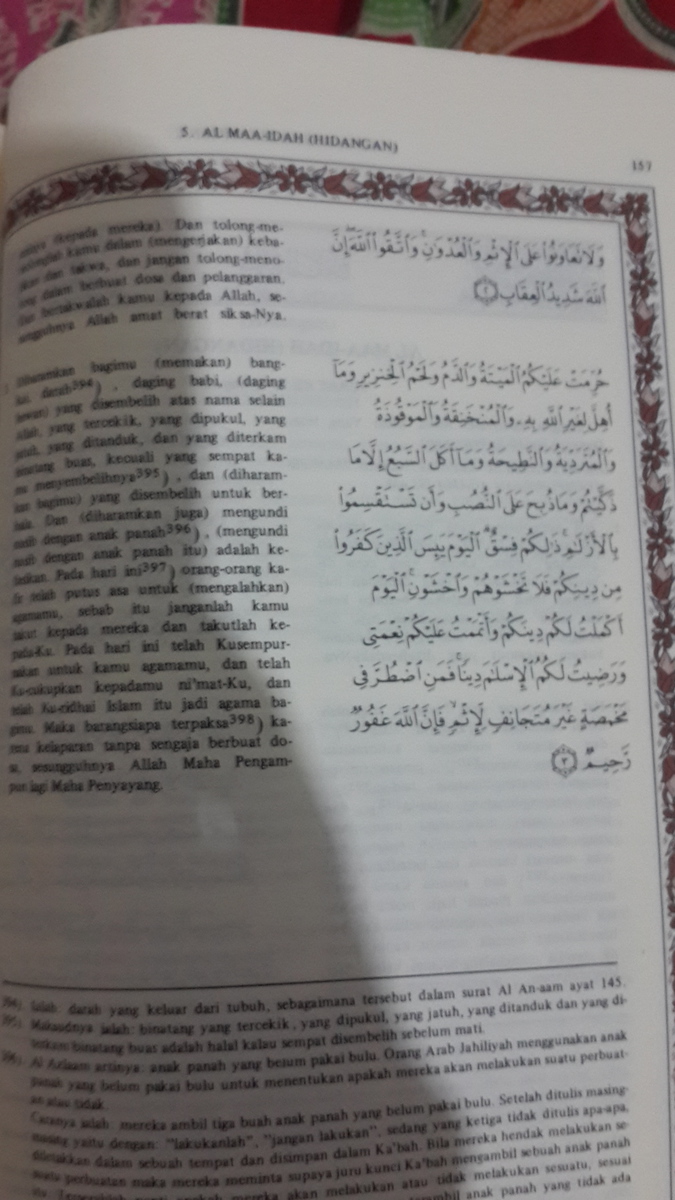 5. AL MAA-IDAH (HIDANGAN)
157
(kepada mereka). Dan tolong-me-
kamu dalam (mengerjakan) keba-
dan takwa, dan jangan tolong-meno-
dalam berbuat dosa dan pelanggaran.
Dan bertakwalah kamu kepada Allah, se-
sungguhnya Allah amat berat siksa-Nya.
Diharamkan bagimu (memakan) bang-
kai, darah394), daging babi, (daging
hewan) yang disembelih atas nama selain
Allah, yang tercekik, yang dipukul, yang
jatuh, yang ditanduk, dan yang diterkam
binatang buas, kecuali yang sempat ka-
mu menyembelihnya395), dan (diharam-
kan bagimu) yang disembelih untuk ber-
hala. Dan (diharamkan juga) mengundi
nasib dengan anak panah396), (mengundi
nasib dengan anak panah itu) adalah ke-
fasikan. Pada hari ini397) orang-orang ka-
fir telah putus asa untuk (mengalahkan)
agamamu, sebab itu janganlah kamu
takut kepada mereka dan takutlah ke-
pada-Ku. Pada hari ini telah Kusempur-
nakan untuk kamu agamamu, dan telah
Ku-cukupkan kepadamu ni'mat-Ku, dan
telah Ku-ridhai Islam itu jadi agama ba-
gimu. Maka barangsiapa terpaksa398) ka-
rena kelaparan tanpa sengaja berbuat do-
sa, sesungguhnya Allah Maha Pengam-
pun lagi Maha Penyayang.
وَلَا تَعَاوَنُوا۟ عَلَى ٱلْإِثْمِ وَٱلْعُدْوَٰنِ ۚ وَٱتَّقُوا۟ ٱللَّهَ ۖ إِنَّ
ٱللَّهَ شَدِيدُ ٱلْعِقَابِ ٢
حُرِّمَتْ عَلَيْكُمُ ٱلْمَيْتَةُ وَٱلدَّمُ وَلَحْمُ ٱلْخِنزِيرِ وَمَآ
أُهِلَّ لِغَيْرِ ٱللَّهِ بِهِۦ وَٱلْمُنْخَنِقَةُ وَٱلْمَوْقُوذَةُ
وَٱلْمُتَرَدِّيَةُ وَٱلنَّطِيحَةُ وَمَآ أَكَلَ ٱلسَّبُعُ إِلَّا مَا
ذَكَّيْتُمْ وَمَا ذُبِحَ عَلَى ٱلنُّصُبِ وَأَن تَسْتَقْسِمُوا۟
بِٱلْأَزْلَٰمِ ۚ ذَٰلِكُمْ فِسْقٌ ۗ ٱلْيَوْمَ يَئِسَ ٱلَّذِينَ كَفَرُوا۟
مِن دِينِكُمْ فَلَا تَخْشَوْهُمْ وَٱخْشَوْنِ ۚ ٱلْيَوْمَ
أَكْمَلْتُ لَكُمْ دِينَكُمْ وَأَتْمَمْتُ عَلَيْكُمْ نِعْمَتِى
وَرَضِيتُ لَكُمُ ٱلْإِسْلَٰمَ دِينًا ۚ فَمَنِ ٱضْطُرَّ فِى
مَخْمَصَةٍ غَيْرَ مُتَجَانِفٍ لِّإِثْمٍ ۙ فَإِنَّ ٱللَّهَ غَفُورٌ
رَّحِيمٌ ٣
394). Ialah: darah yang keluar dari tubuh, sebagaimana tersebut dalam surat Al An-aam ayat 145.
395). Maksudnya ialah: binatang yang tercekik, yang dipukul, yang jatuh, yang ditanduk dan yang di-
terkam binatang buas adalah halal kalau sempat disembelih sebelum mati.
396). Al Azlaam artinya: anak panah yang belum pakai bulu. Orang Arab Jahiliyah menggunakan anak
panah yang belum pakai bulu untuk menentukan apakah mereka akan melakukan suatu perbuat-
an atau tidak.
Caranya ialah: mereka ambil tiga buah anak panah yang belum pakai bulu. Setelah ditulis masing-
masing yaitu dengan: "lakukanlah", "jangan lakukan", sedang yang ketiga tidak ditulis apa-apa,
diletakkan dalam sebuah tempat dan disimpan dalam Ka'bah. Bila mereka hendak melakukan se-
suatu perbuatan maka mereka meminta supaya juru kunci Ka'bah mengambil sebuah anak panah
mereka akan melakukan atau tidak melakukan sesuatu, sesuai
anak panah yang tidak ada